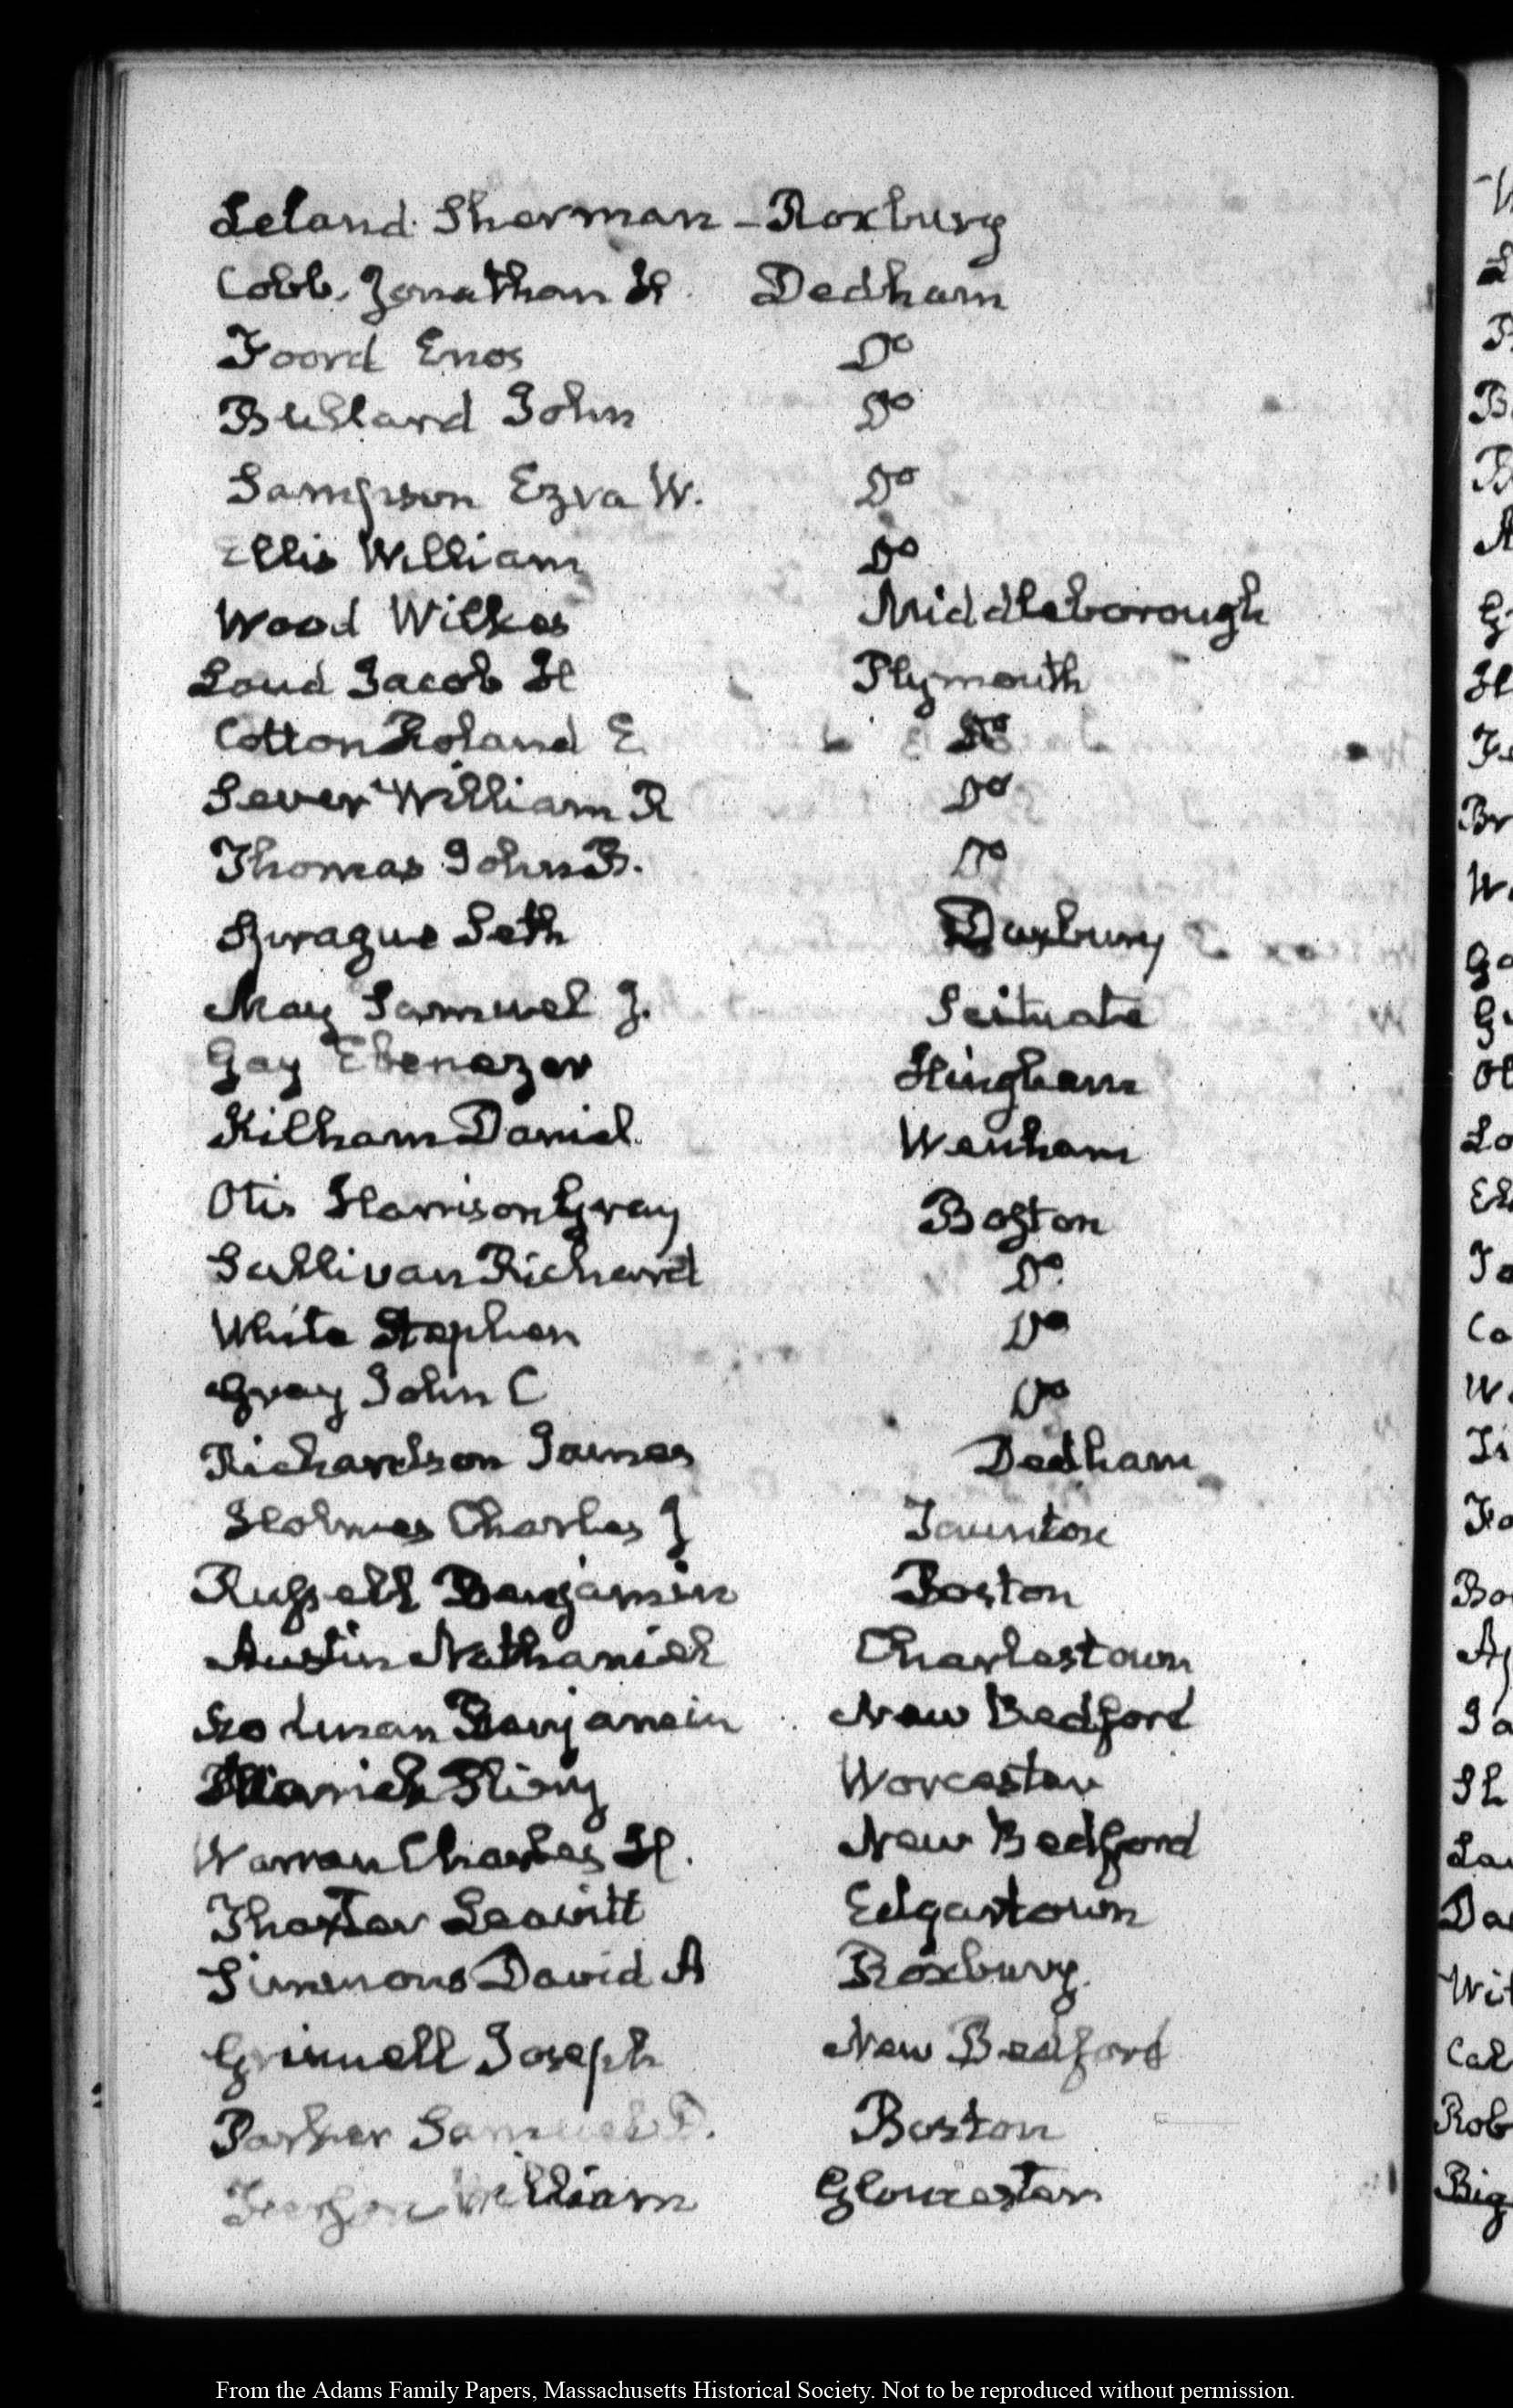 Leland Sherman – Roxbury
Cobb, Jonathan H. Dedham
Foord Enos Do
Bullard John Do
Sampson Ezra W. Do
Ellis William Do
Wood Wilkes Middleborough
Loud Jacob H Plymouth
Cotton Roland E. Do
Sever William R Do
Thomas John B. Do
Sprague Seth Duxbury
May Samuel J. Scituate
Gay Ebenezer Hingham
Kilham Daniel Wenham
Otis Harrison Gray Boston
Sullivan Richard Do
White Stephen Do
Gray John C Do
Richardson James Dedham
Holmes Charles J Taunton
Russell Benjamin Boston
Austin Nathaniel Charlestown
Rodman Benjamin New Bedford
Worcester
Warren Charles H. New Bedford
Thaxter Leavitt Edgartown
Simmons David A Roxbury
Grinnell Joseph New Bedford
Parker Samuel D. Boston
William Gloucester
W
Br
Ga
Ol
Lo
Ca
Wit
Cal
Rob
Big
From the Adams Family Papers, Massachusetts Historical Society. Not to be reproduced without permission.